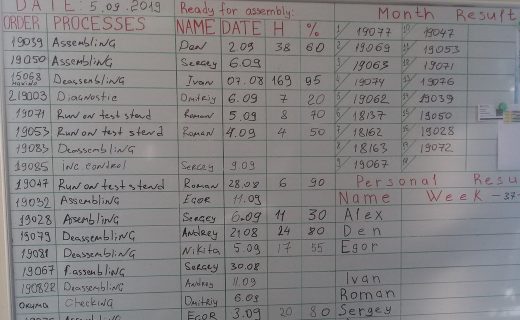 DATE: 5.09.2019 Ready for assembly:
ORDER PROCESSES NAME DATE H %
19039 AssembliNG Den 2.09 38 60
19050 AssembliNG Sergey 6.09
15068 DeassembliNG Ivan 07.08 169 95
219003 Diagnostic Dmitriy 6.09 7 20
19071 Run on test stend Roman 5.09 8 70
19053 Run on test stend Roman 4.09 4 50
19083 DeassembliNG
19085 INC CONTROL Sergey 9.09
19047 Run on test stend Roman 28.08 6 90
19032 AssembliNG EGOR 11.09
19028 AssembliNG Sergey 6.09 11 30
19079 DeassembliNG Andrey 21.08 24 80
19081 DeassembliNG Nikita 5.09 17 55
19067 P.assembliNG Sergey 30.08
190828 DeassembliNG Andrey 11.09
OKUMA CheckiNG Dmitriy 6.09
EGOR 3.09 20 80
Month Result
1/ 19077 19047
2/ 19069 19053
3/ 19063 19071
4/ 19074 19076
5/ 19062 19039
6/ 18137 19050
7/ 18162 19028
8/ 18163 19072
9/ 19067
Personal Resu
Name Week -37-
Alex
Den
Egor
Ivan
Roman
Sergey